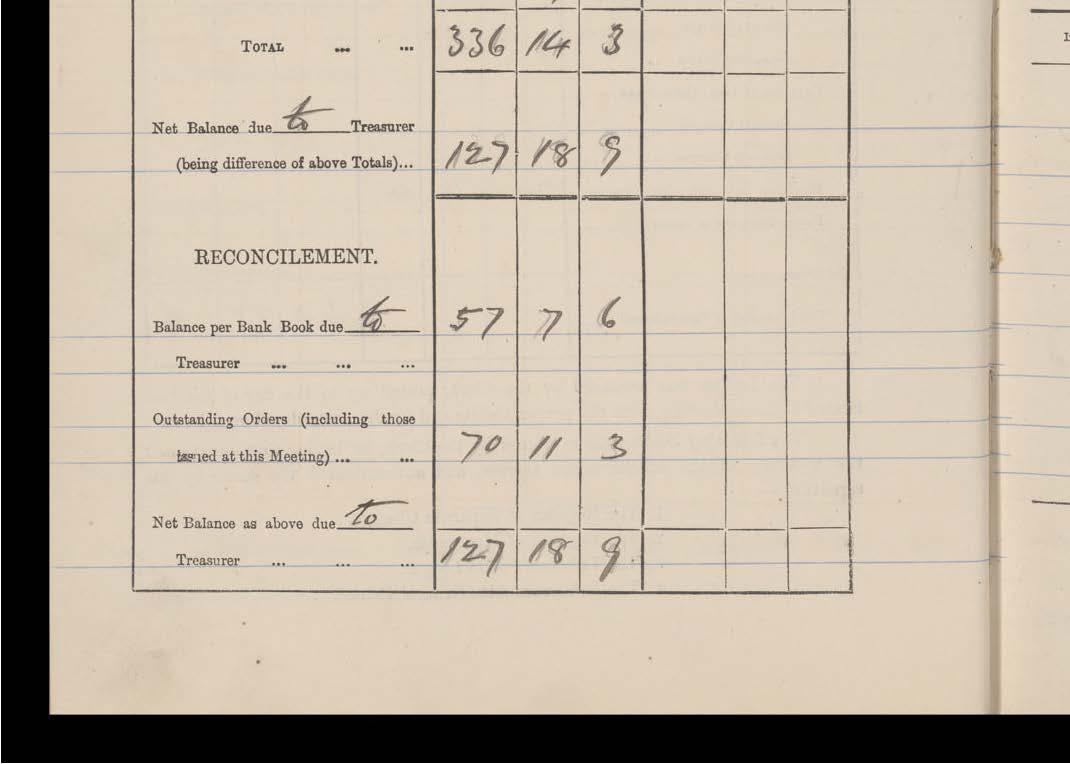 TOTAL ... ... 336 14 3
Net Balance due to Treasurer
(being difference of above Totals)... 127 18 9
RECONCILEMENT.
Balance per Bank Book due to 57 7 6
Treasurer ... ... ...
Outstanding Orders (including those
issued at this Meeting) ... ... 70 11 3
Net Balance as above due to
Treasurer ... ... ... 127 18 9